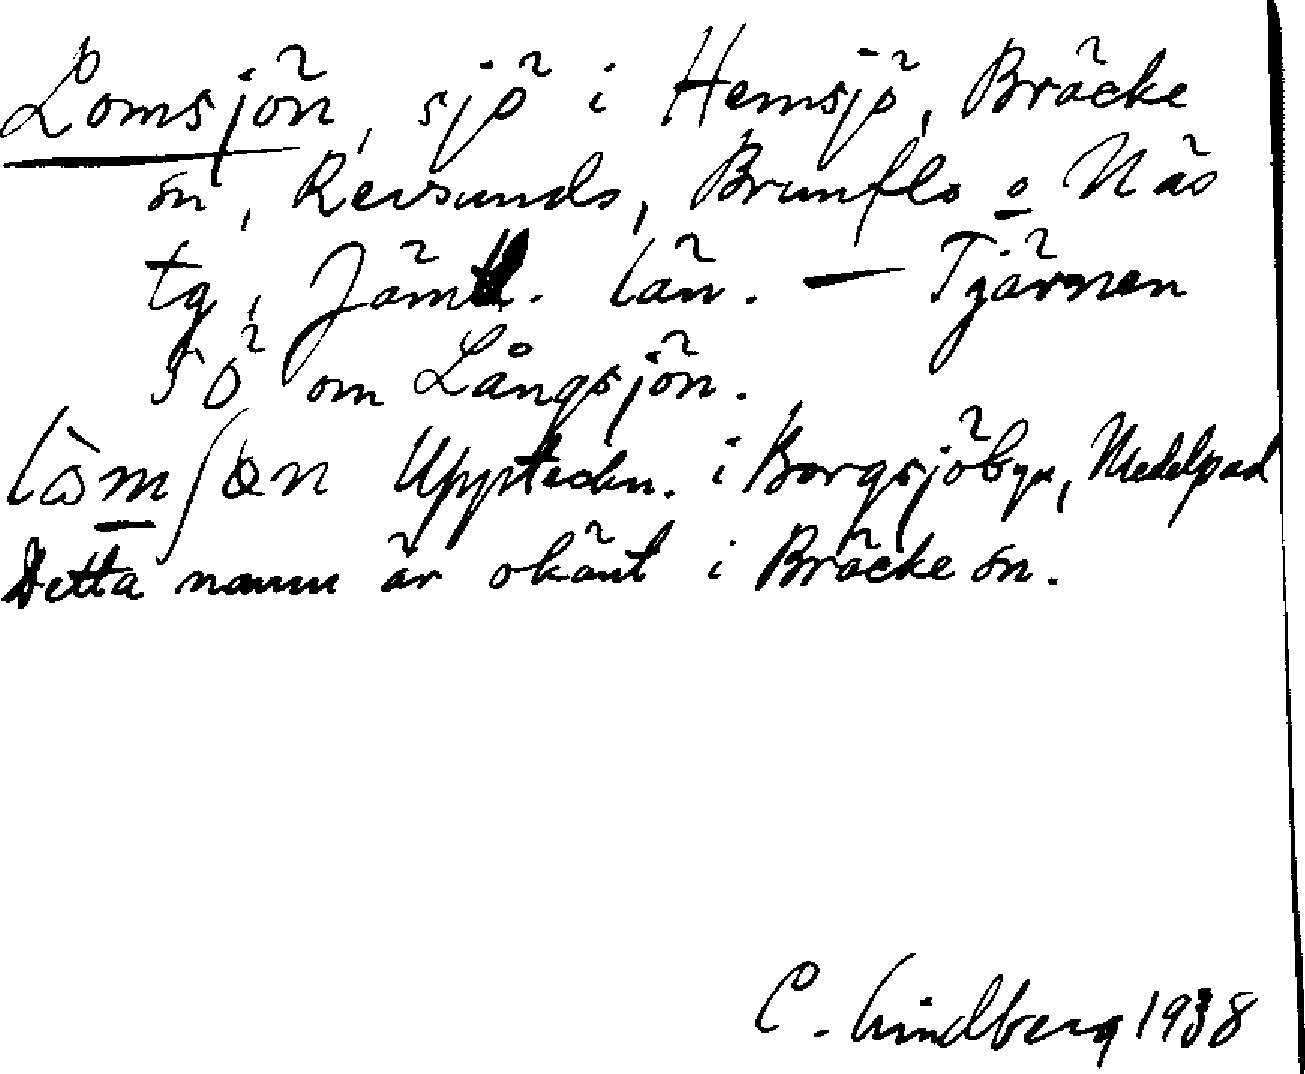 Lomsjön, sjö i Hemsjö, Bräcke
sn, Revsunds, Brunflo o Näs
tg, Jämtl. län. — Tjärnen
SÖ om Långsjön.
Uppteckn. i Borgsjöbyn, Medelpad
Detta namn är okänt i Bräcke sn.
C. Lindberg 1938